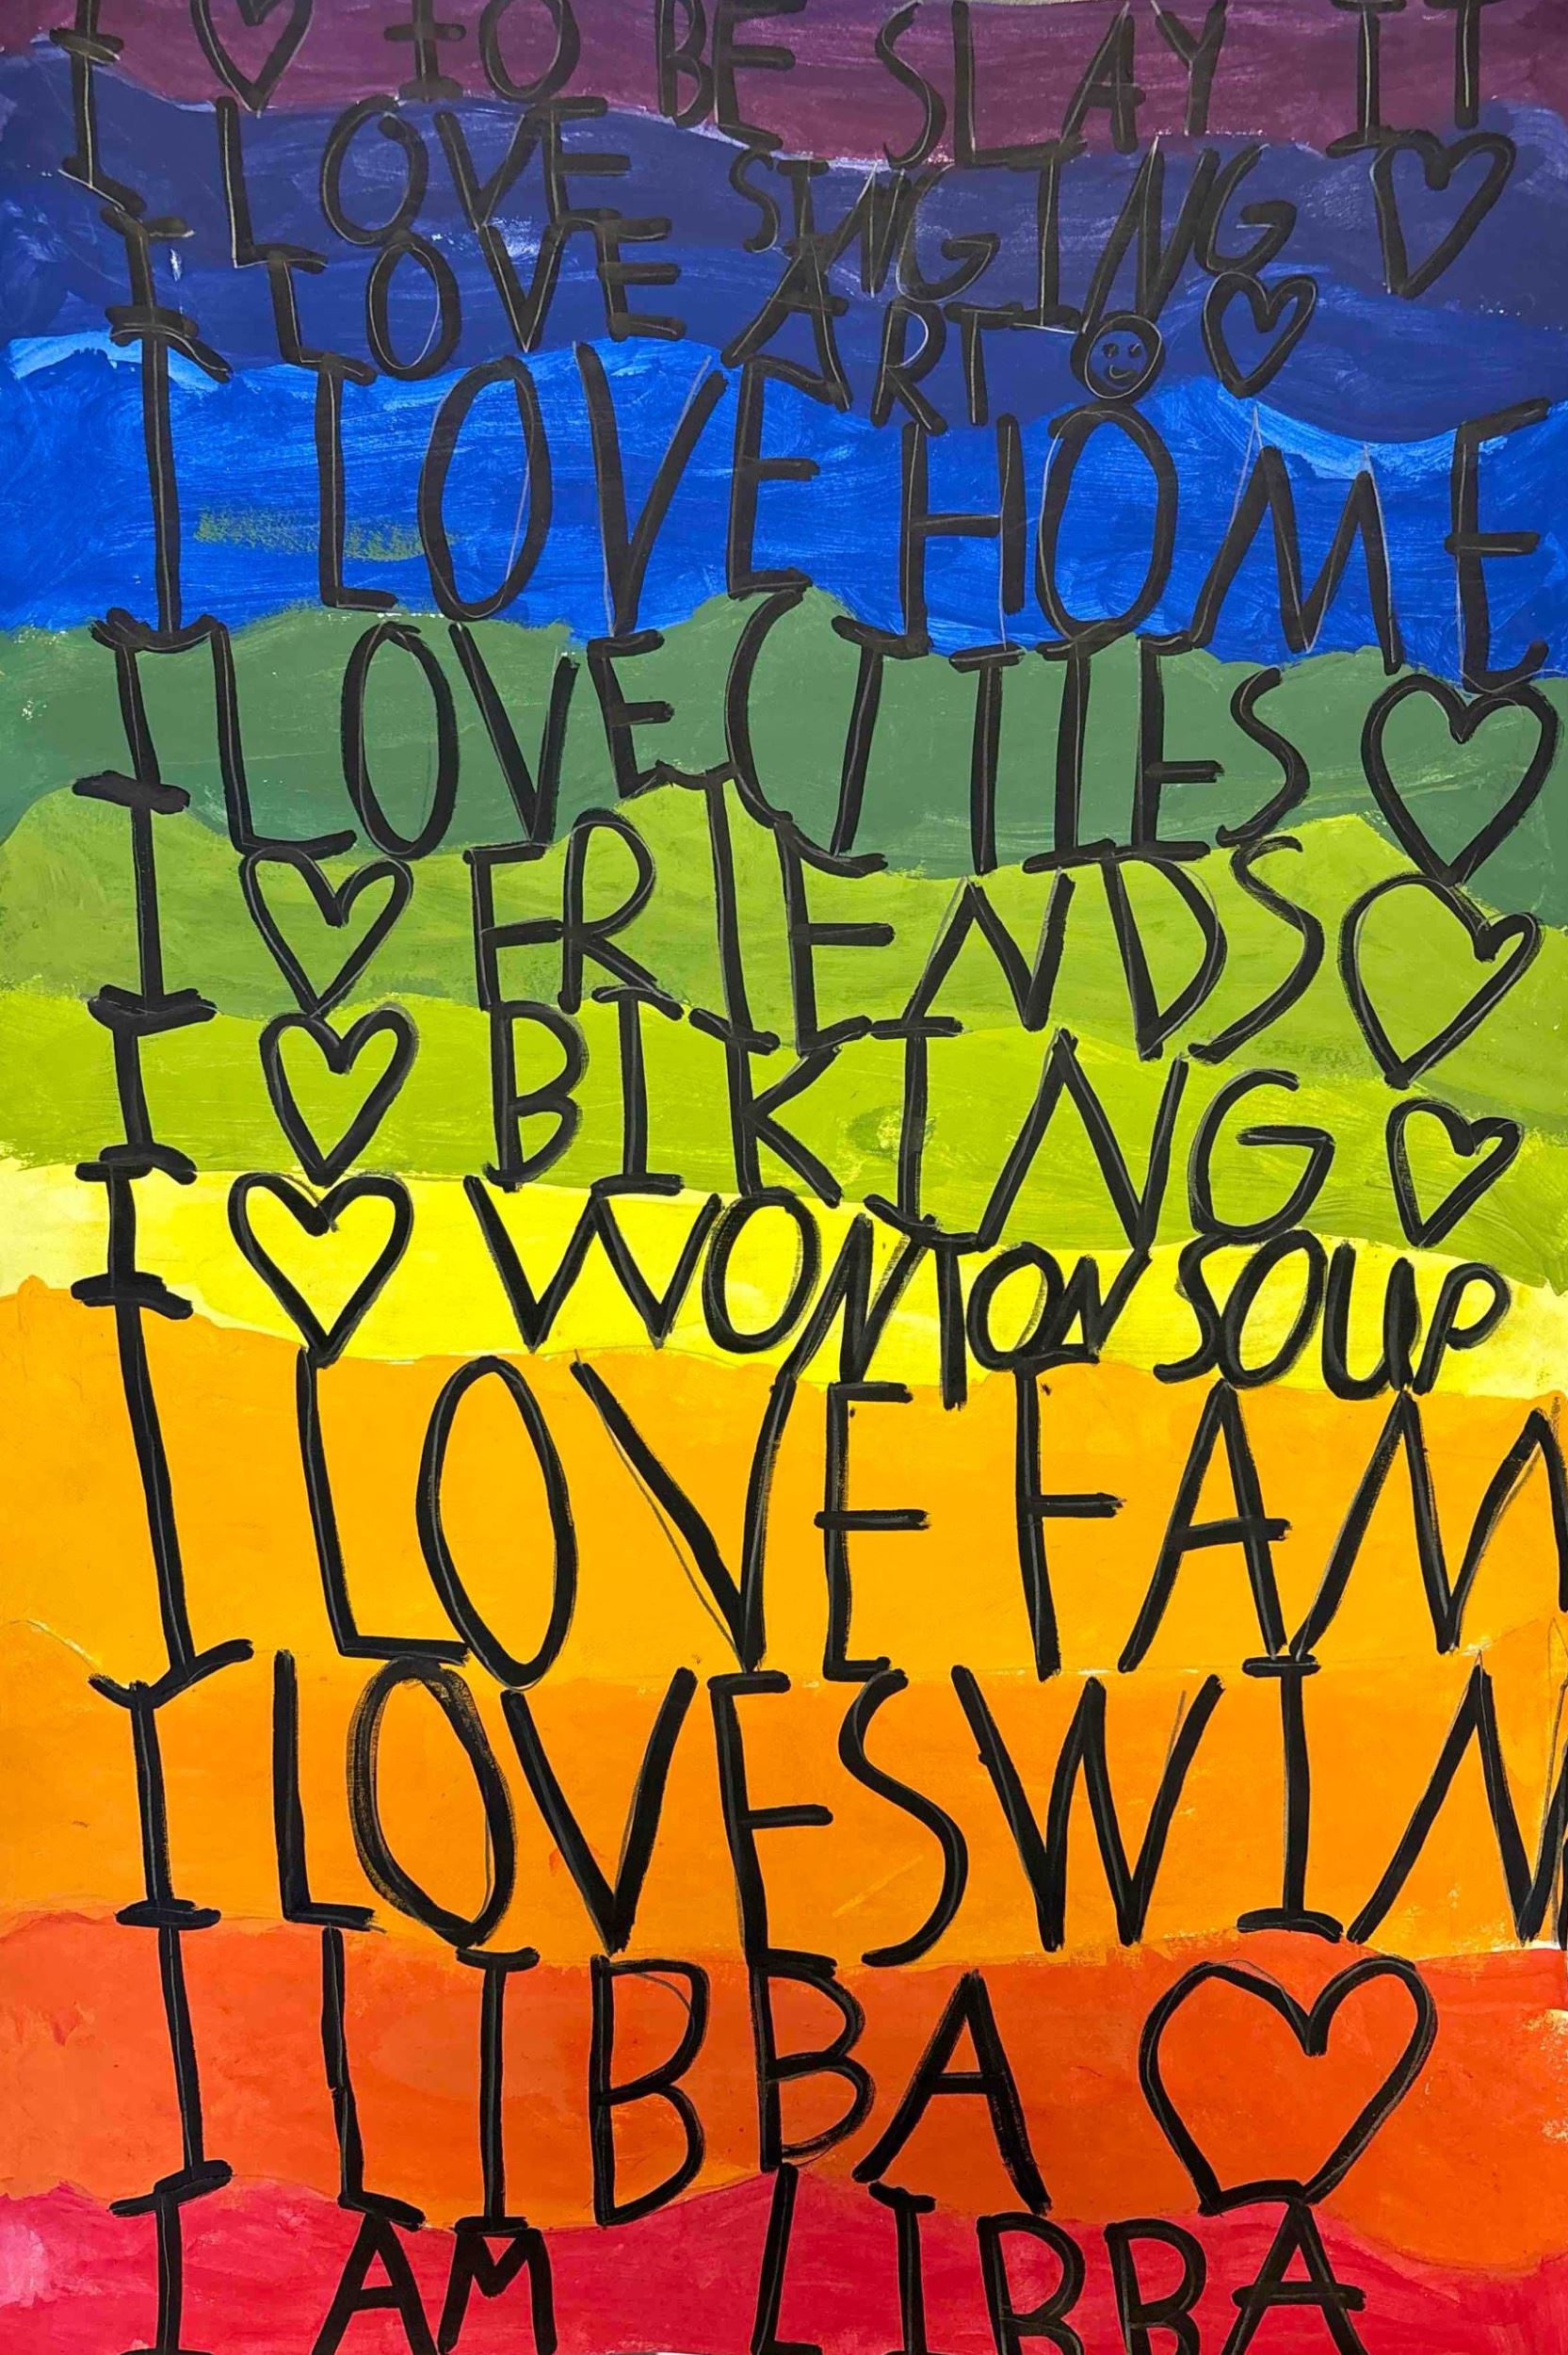 I ♡ TO BE SLAY IT
I LOVE SINGING ♡
I LOVE ART ☺ ♡
I LOVE HOME
I LOVE CITIES ♡
I ♡ FRIENDS ♡
I ♡ BIKING ♡
I ♡ WONTON SOUP
I LOVE FAM
I LOVE SWIM
I LIBBA ♡
I AM LIBBA